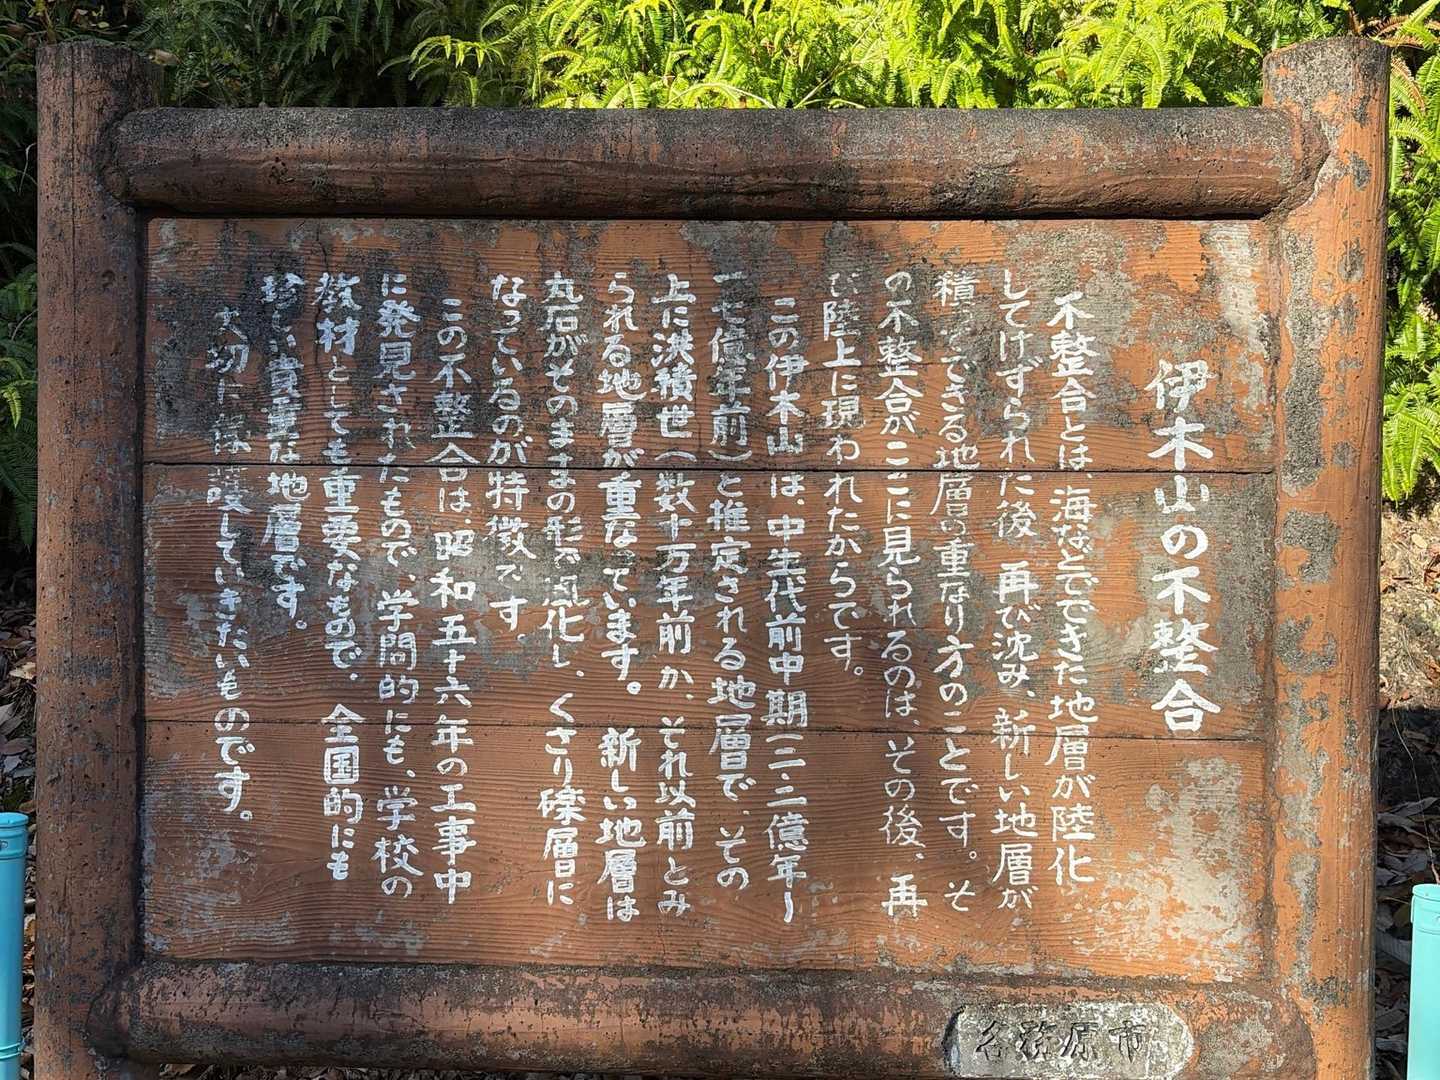 伊木山の不整合
不整合とは、海などでできた地層が陸化
してけずられた後、再び沈み、新しい地層が
積ってできる地層の重なり方のことです。そ
の不整合がここに見られるのは、その後、再
び陸上に現われたからです。
この伊木山は、中生代前中期(二・二億年〜
一・七億年前)と推定される地層で、その
上に洪積世(数十万年前か、それ以前とみ
られる地層が重なっています。新しい地層は
丸石がそのままの形で風化し、くさり礫層に
なっているのが特徴です。
この不整合は、昭和五十六年の工事中
に発見されたもので、学問的にも、学校の
教材としても重要なもので、全国的にも
珍しい貴重な地層です。
大切に保護していきたいものです。
各務原市